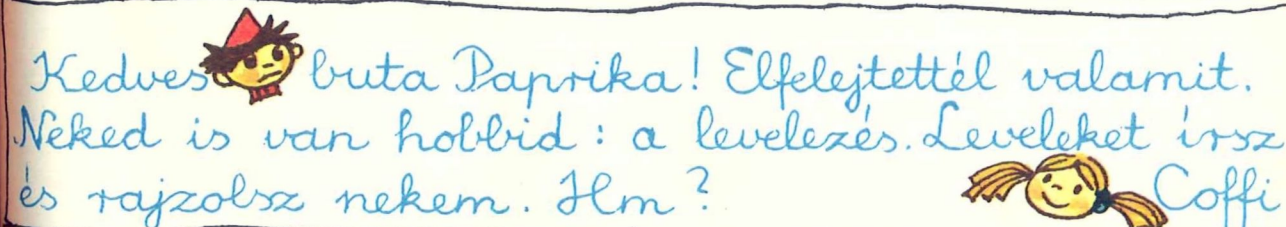 Kedves buta Paprika! Elfelejtettél valamit.
Neked is van hobbid: a levelezés. Leveleket írsz
és rajzolsz nekem. Hm?
Coffi